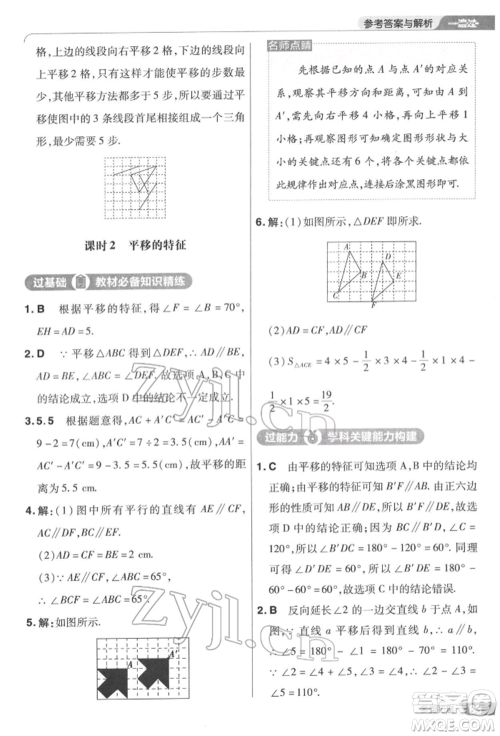 参考答案与解析 一遍过
格,上边的线段向右平移2格,下边的线段向
右平移1格,再向上平移2格,平移的步数最
少,其他平移方法都多于5步,∴通过最少平
移使图中的3条线段首尾相接组成一个三角
形,最少需要5步.
课时2 平移的特征
过基础 教材必备知识精练
1. B 根据平移的特征,得∠F=∠B=70°,
EH=AD=5.
2. D ∵平移△ABC得到△DEF,∴AD∥BE,
AD=BE,∠ABC=∠DEF,故选项A,B,C中
的结论成立,选项D中的结论不一定成立.
3. 5.5 根据题意得,AC=A'C',∴AA'=CC'=
9-2=7(cm),A'C=7÷2=3.5(cm),∴A'C'=
9-3.5=5.5(cm).
4. 解:(1)图中所有平行的直线有AE∥CF,
AC∥DF,BC∥EF.
(2)AD=CF=BE=2 cm.
(3)∵AE∥CF,∠ABC=65°,
∴∠BCF=∠ABC=65°.
5. 解:如图所示.
A
A'
名师点睛
先根据已知的点A与点A'的对应关
系,观察其平移方向和距离,可知由点A到
A',需向右平移4小格,再向上平移1小
格.因为图形平移的特点是图形上所有点
的平移情况都相同,所以可确定阴影部分
图形可做相同的平移,根据图形大小,适
当的找些关键点,每个关键点都要依此
规律作出对应点,连接后涂黑图形即可.
6. 解:(1)如图所示,△DEF即所求.
A
D
B
E
C
F
(2)AD=CF,AD∥CF.
(3)S△ACE=4×5-1/2×3×4-1/2×1×5-
1/2×1×5=19/2.
过能力 学科关键能力构建
1. C 由平移的特征可知选项A,B中的结论均
正确.因为B'E'∥BE,B'F'∥BF,由正六边
形的性质可知BE∥AF,BF⊥AB,所以B'E'∥
AF,B'F'⊥AB,故选项D中的结论正确.因为
∠DEF=120°,所以∠DEB=60°.因为B'E'∥
BE,所以∠B'DE=180°-∠DEB=180°-
60°=120°,所以∠B'DC=360°-120°-120°-
60°=60°,故选项C中的结论错误.
2. B 反向延长∠2的一边交直线b于点A,如
图.∵直线a平移后得到直线b,∴a∥b,
∴∠5=180°-∠1=180°-60°=120°.
∵∠2=∠4+∠5,∠3=∠4,∴∠2-∠3=
∠5=120°.
Zyjl.Cn
答案圈
MXQE.COM